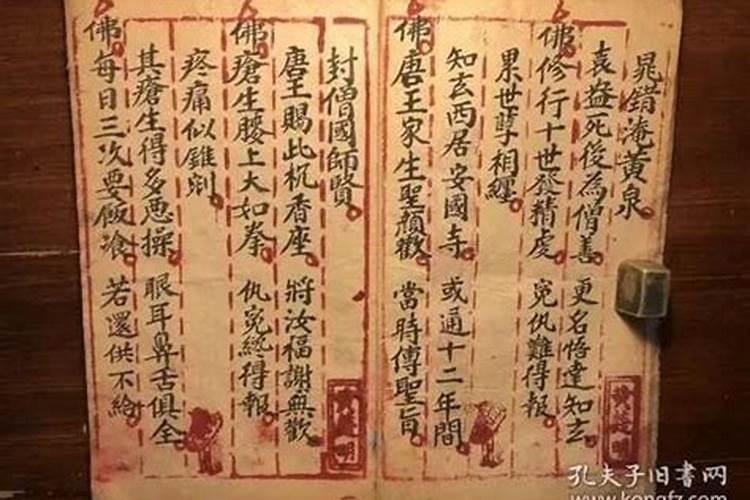 晁錯淹黃泉
袁益死後為僧善 更名悟達知玄
佛修行十世發精虔 冤仇難得報
累世孽相纏
知玄西居安國寺 或通十二年間
佛唐王家生聖顏歡 當時傳聖旨
封僧國師賢
唐王賜此杌香座 將汝福謝無歡
佛瘡生腰上大如拳 仇冤終得報
疼痛似錐刺
其瘡生得多恶操 眼耳鼻舌俱全
佛每日三次要飯飡 若還供不給
孔夫子旧书网